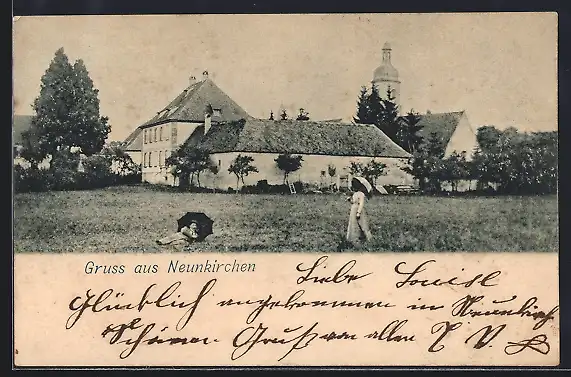 Gruss aus Neunkirchen
Liebe Louise
Glücklich angekommen in Neunkirch
Gruß von allen